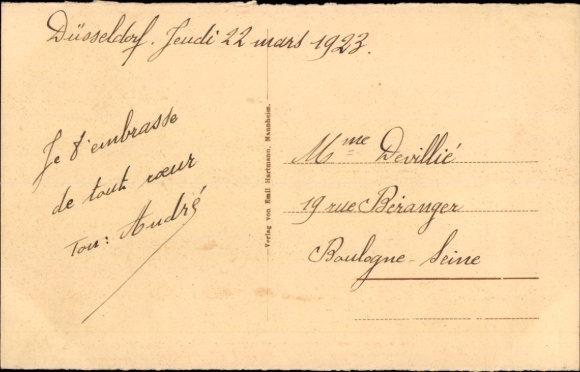 Düsseldorf. Jeudi 22 mars 1923.
Je t'embrasse
de tout cœur
Ton: André
Verlag von Emil Hartmann, Mannheim.
Mme Devillié
19 rue Béranger
Boulogne-Seine